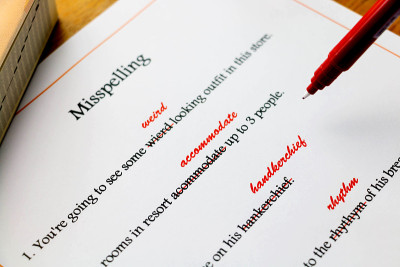 Misspelling
weird
1. You're going to see some wierd looking outfit in this store.
accommodate
rooms in resort up to 3 people.
handkerchief
on his hankerchief.
rhythm
to the rhythym of his